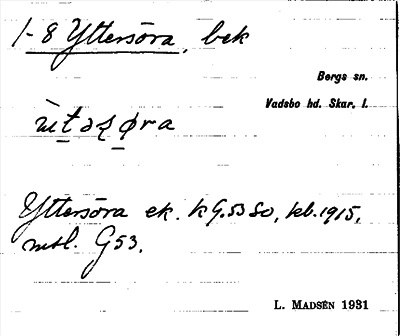 1-8 Yttersöra, bek
Bergs sn.
Vadsbo hd. Skar. l.
Yttersöra ek. k G.53 SO, kb. 1915,
mtl. G53.
L. MADSÉN 1931